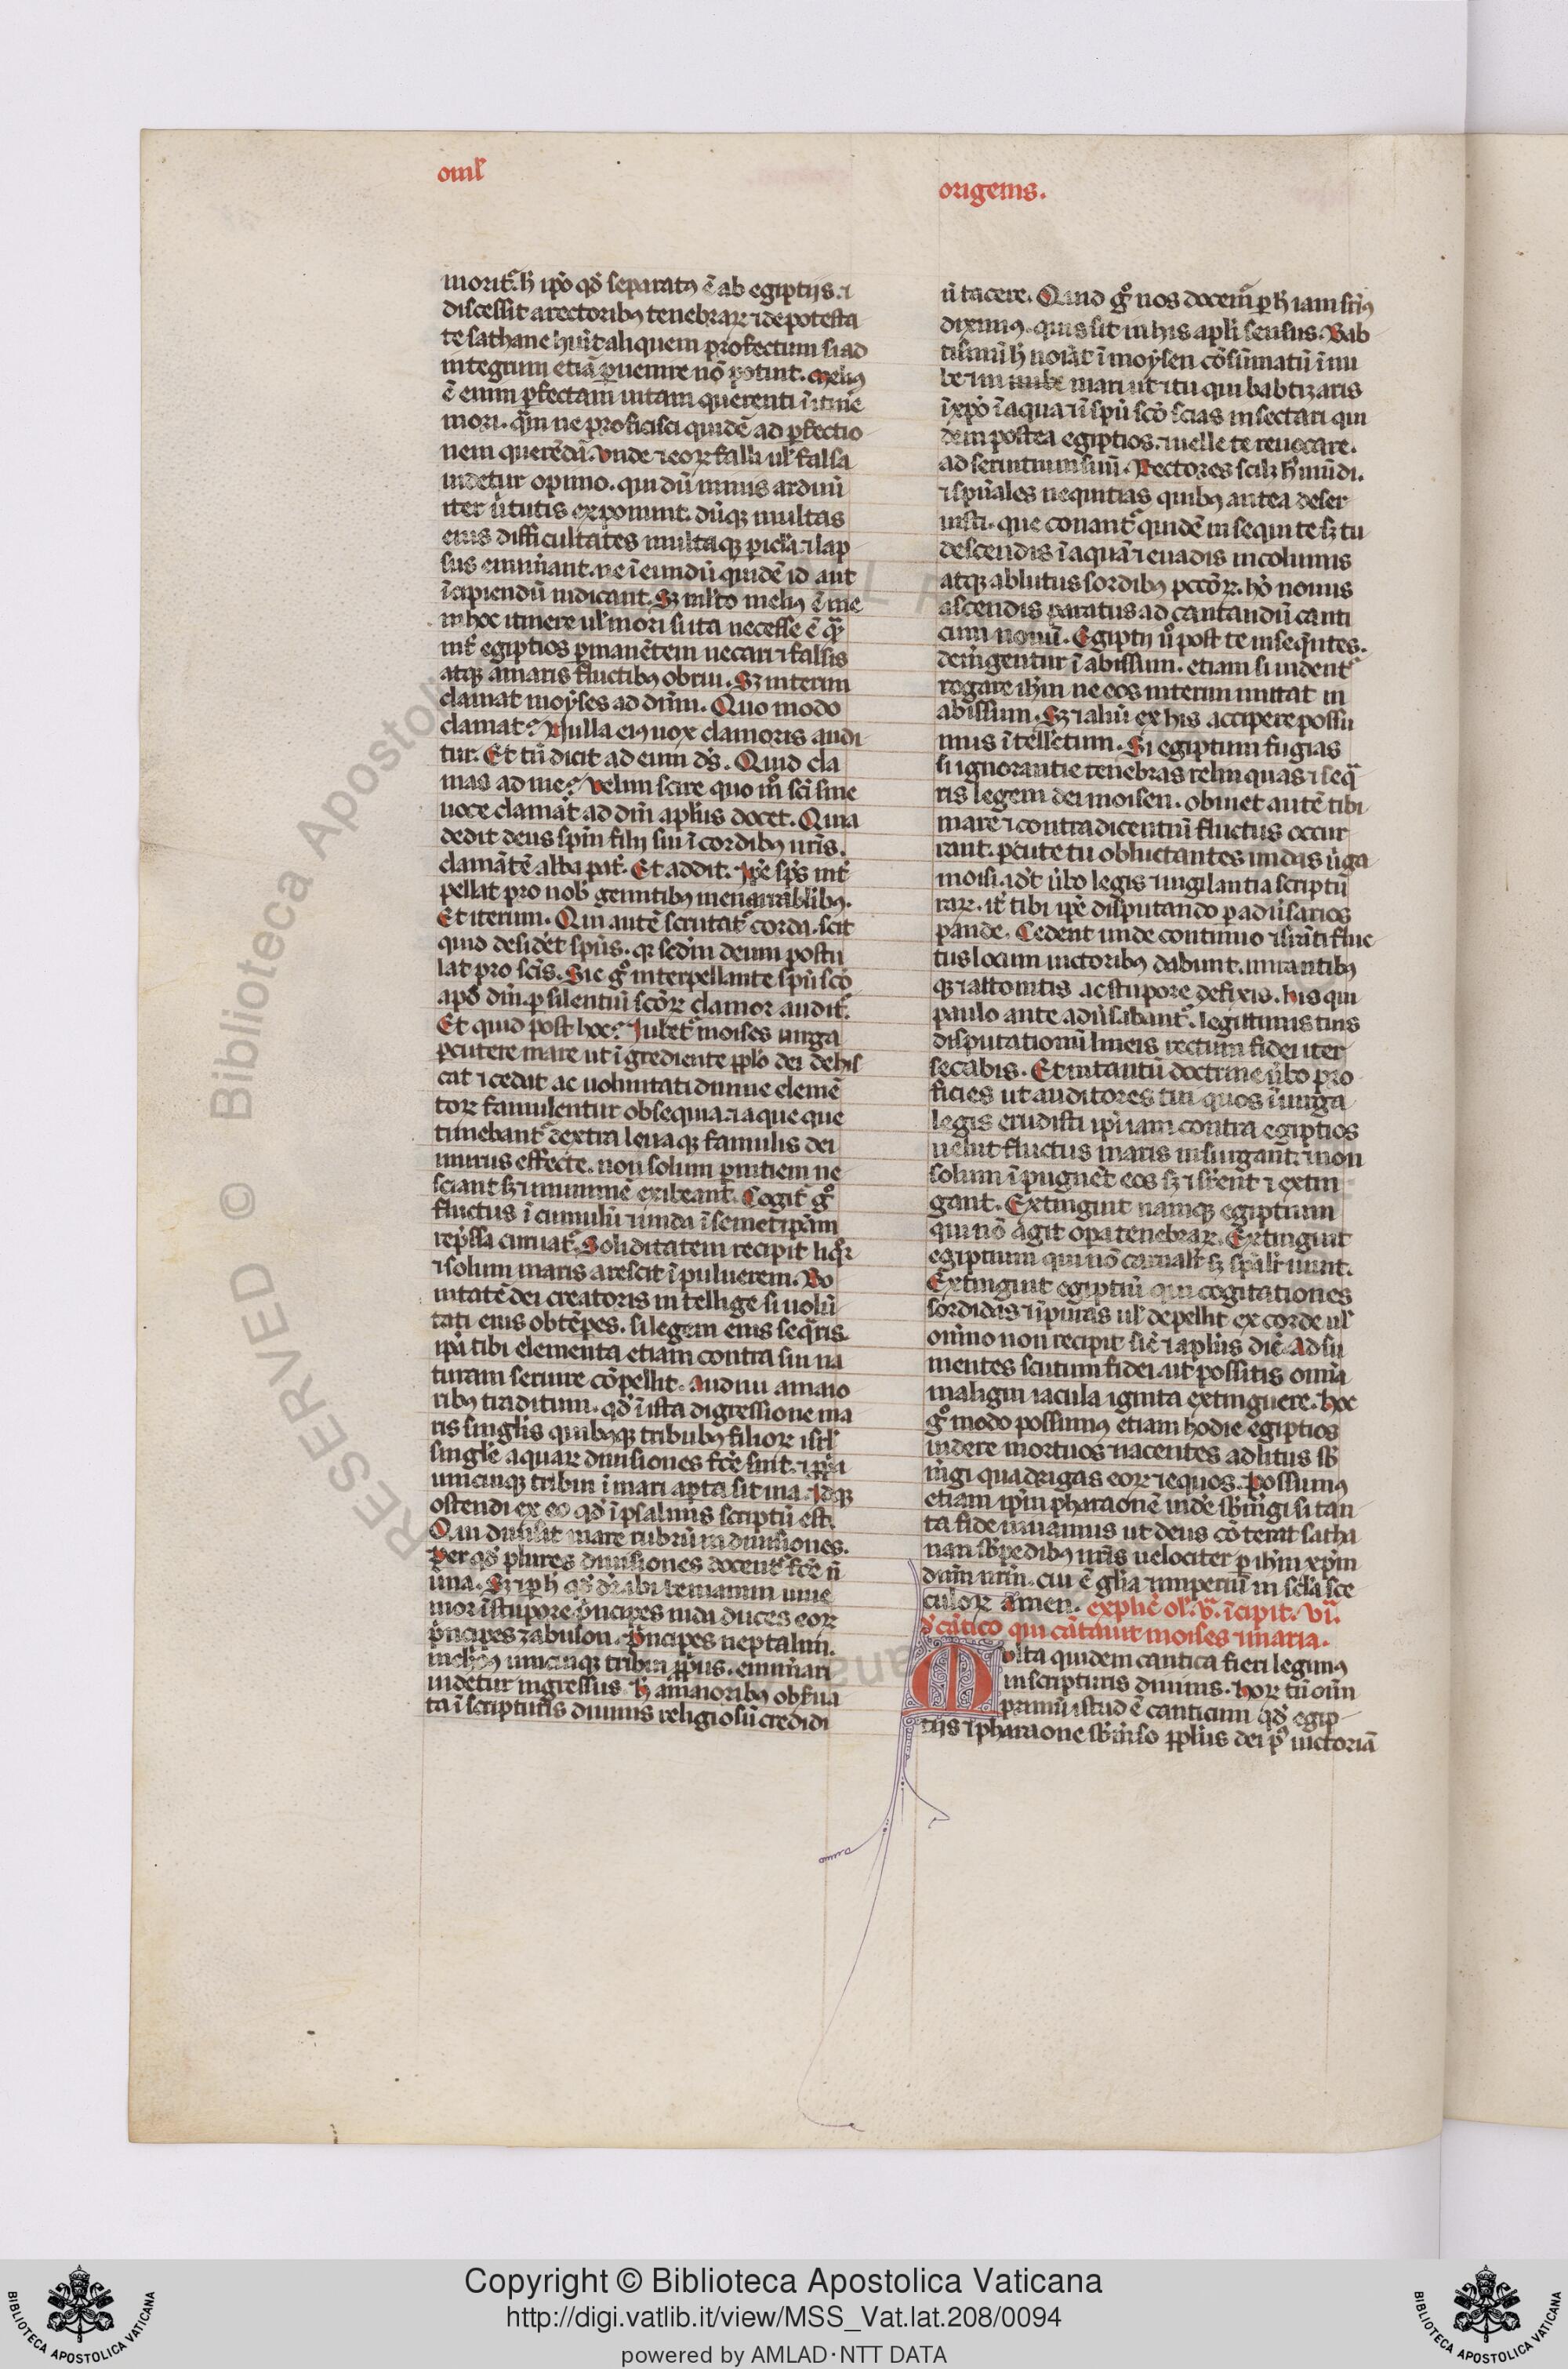 oml̕
origenis.
morit᷑. h̄ ip̄o qd̕ separatꝰ ē ab egiptijs. ⁊
discessit a rectoribꝰ tenebraꝝ ⁊ de potesta
te sathane huīt aliquem profectum si ad
integrum etiā ꝑuenire nō potuit. Meliꝰ
ē enim ꝑfectam uitam querenti ī itine
mori. qͣ̄m ne proficisci quidē ad ꝑfectio
nem querēdā. Unde ⁊ eoꝝ falli ul̕ falsa
uidetur opinio. qui dū nimis arduū
iter ūtutis exponunt. dūqꝫ multas
eius difficultates multaqꝫ ꝑicl̕a. ⁊ lap
sus enum̄ant. ne īeundū quidē id aut
īcipiendū iudicant. Sꝫ ml̕to meliꝰ ē me
in hoc itinere ul̕ mori si ita necesse ē qͣ̄
int̕ egiptios ꝑmanētem necari ⁊ falsis
atqꝫ amaris fluctibꝰ obrui. Sꝫ interim
clamat moyses ad dn̄m. Quo modo
clamat? Nulla eiꝰ uox clamoris audi
tur. Et tn̄ dicit ad eum ds̄. Quid cla
mas ad me? Uelim scire quo mͦ sc̄i sine
uoce clamāt ad dn̄m apl̕us docet. Quia
dedit deus spm̄ filij sui ī cordibꝰ ur̄is.
clamātē abba pat̕. Et addit. Ip̄e sp̄s int̕
pellat pro nob̕ gemitibꝰ inenarrabl̕ibꝰ.
Et iterum. Qui autē scrutat᷑ corda. scit
quid desidet̕ spūs. qꝛ scd̄m deum postu
lat pro sc̄is. Sic gͦ interpellante spū scō
apd̕ dm̄. ꝑ silentiū sc̄oꝝ clamor audit᷑.
Et quid post hoc? Iubet᷑ moises uirga
ꝑcutere mare ut īgrediente ꝓpl̕o dei dehis
cat ⁊ cedat ac uoluntati diuine elemē
toꝝ famulentur obsequia. ⁊ aque que
timebant᷑ dextra leuaqꝫ famulis dei
murus effecte. non solum ꝑnitiem ne
sciant sꝫ ⁊ munimē exibeant. Cogit᷑ gͦ
fluctus ī cumulū ⁊ unda ī semetip̄am
rep̄ssa curuat᷑. Soliditatem recipit liqͦr
⁊ solum maris arescit ī puluerem. Bo
nitatē dei creatoris intellige si uolū
tati eius obtēpes. si legem eius seqͣris.
ip̄a tibi elementa etiam contra sui na
turam seruire cōpellit. Audiui a maio
ribꝰ traditum. qd̕ ī ista digressione ma
ris singl̕is quibꝰqꝫ tribubꝰ filioꝝ isrl̕
singl̕e aquaꝝ diuisiones fc̄e sint. ⁊ ꝓp̄a
unicuiqꝫ tribui ī mari apta sit uia. Idqꝫ
ostendi ex eo qd̕ ī psalmis scriptū est.
Qui diuisit mare rubrū in diuisiones.
Per qd̕ plures diuisiones docent᷑ fc̄e n̄
una. Sꝫ ⁊ ꝑ h̄ qd̕ dr̄. ibi beniamin iuue
nior ī stupore. p̄ncipes iuda duces eoꝝ
p̄ncipes zabulon. P̄ncipes neptalim.
nichilominꝰ unicuiqꝫ tribui ꝓp̄ius. enum̄ari
uidetur ingressus. h̄ a maioribꝰ obs̄ua
ta ī scripturis diuinis religiosū credidi
n̄ tacere. Quid gͦ nos docem᷑ ꝑ h̄ iam suꝑiꝰ
diximꝰ. quis sit in his apl̕i sensus. Bab
tismū h̄ noīat̕ ī moysen cōsūmatū ī nu
be. ⁊ in mari ut ⁊ tu qui babtizaris
ī xp̄o ī aqua ⁊ ī spū scō scias insectari qui
dem post te egiptios. ⁊ uelle te reuocare.
ad seruitium suū. Rectores scilꝫ h̕ mūdi.
⁊ spūales nequitias quibꝰ antea deser
uisti. que conant᷑ quidē insequi te sꝫ tu
descendis ī aquā ⁊ euadis incolumis
atqꝫ ablutus sordibꝰ pccōꝝ. hō nouus
ascendis paratus ad cantandū canti
cum nouū. Egiptij ū post te inseqn̄tes.
demgentur ī abissum. etiam si uident᷑
rogare ih̄m ne eos interim mittat in
abissum. Sꝫ ⁊ aliū ex his accipere possu
mus ītellectum. Si egiptum fugias
si ignorantie tenebras relinquas ⁊ seqͣ
ris legem dei moisen. obuiet autē tibi
mare ⁊ contradicentiū fluctus occur
rant. ꝑcute tu obluctantes undas ūga
moisi. ad̕t ūbo legis ⁊ uigilantia scriptu
raꝝ. it̕ tibi ip̄e disputando ꝑ adūsarios
pande. Cedent unde continuo ⁊ suꝑati fluc
tus locum uictoribꝰ dabunt. mirantibꝰ
qꝫ ⁊ attonitis ac stupore defixis. his qui
paulo ante adūsabant᷑. legittimis tuis
disputationū lineis rectum fidei iter
secabis. Et in tantū doctrine ūbo pro
ficies ut auditores tui quos ī uirga
legis erudisti ip̄i iam contra egiptios
uelut fluctus maris insurgant. ⁊ non
solum īpugnēt eos sꝫ ⁊ suꝑent ⁊ extin
gant. Extinguit namqꝫ egiptium
qui nō agit opa tenebraꝝ. Extinguit
egiptium qui nō carnalit̕ sꝫ sp̄alit̕ uiuit.
Extinguit egiptiū qui cogitationes
sordidas ⁊ īpuras ul̕ depellit ex corde ul̕
om̄ino non recipit sic̄ ⁊ apl̕us dic̄. Adsu
mentes scutum fidei. ut possitis om̄ia
maligni iacula ignita extinguere. Hoc
gͦ modo possumꝰ etiam hodie egiptios
uidere mortuos ⁊ iacentes ad litus sb̄
m̄gi quadrigas eoꝝ ⁊ equos. Possumꝰ
etiam ip̄m pharaonē uide᷑ sb̄m̄gi si tan
ta fide uiuamus ut deus cōterat satha
nan sb̄ pedibꝰ nr̄is uelociter ꝑ ih̄m xp̄m
dn̄m nr̄m. cui ē gl̕ia ⁊ imperiū in scl̕a sce
culoꝝ amen. explic̄ ol̕. v̄. īcipit. vi̅.
d̕ cātico qui cātauit moises ⁊ maria.
Multa quidem cantica fieri legimꝰ
in scripturis diuinis. Hoꝝ tn̄ om̄
primū istud ē canticum qd̕ egip
tijs ⁊ pharaone sb̄m̄so ꝓpl̕us dei pͦ uictoriā
RESERVED © Biblioteca Apostolica Vaticana
Copyright © Biblioteca Apostolica Vaticana
http://digi.vatlib.it/view/MSS_Vat.lat.208/0094
powered by AMLAD·NTT DATA
BIBLIOTECA APOSTOLICA VATICANA
BIBLIOTECA APOSTOLICA VATICANA